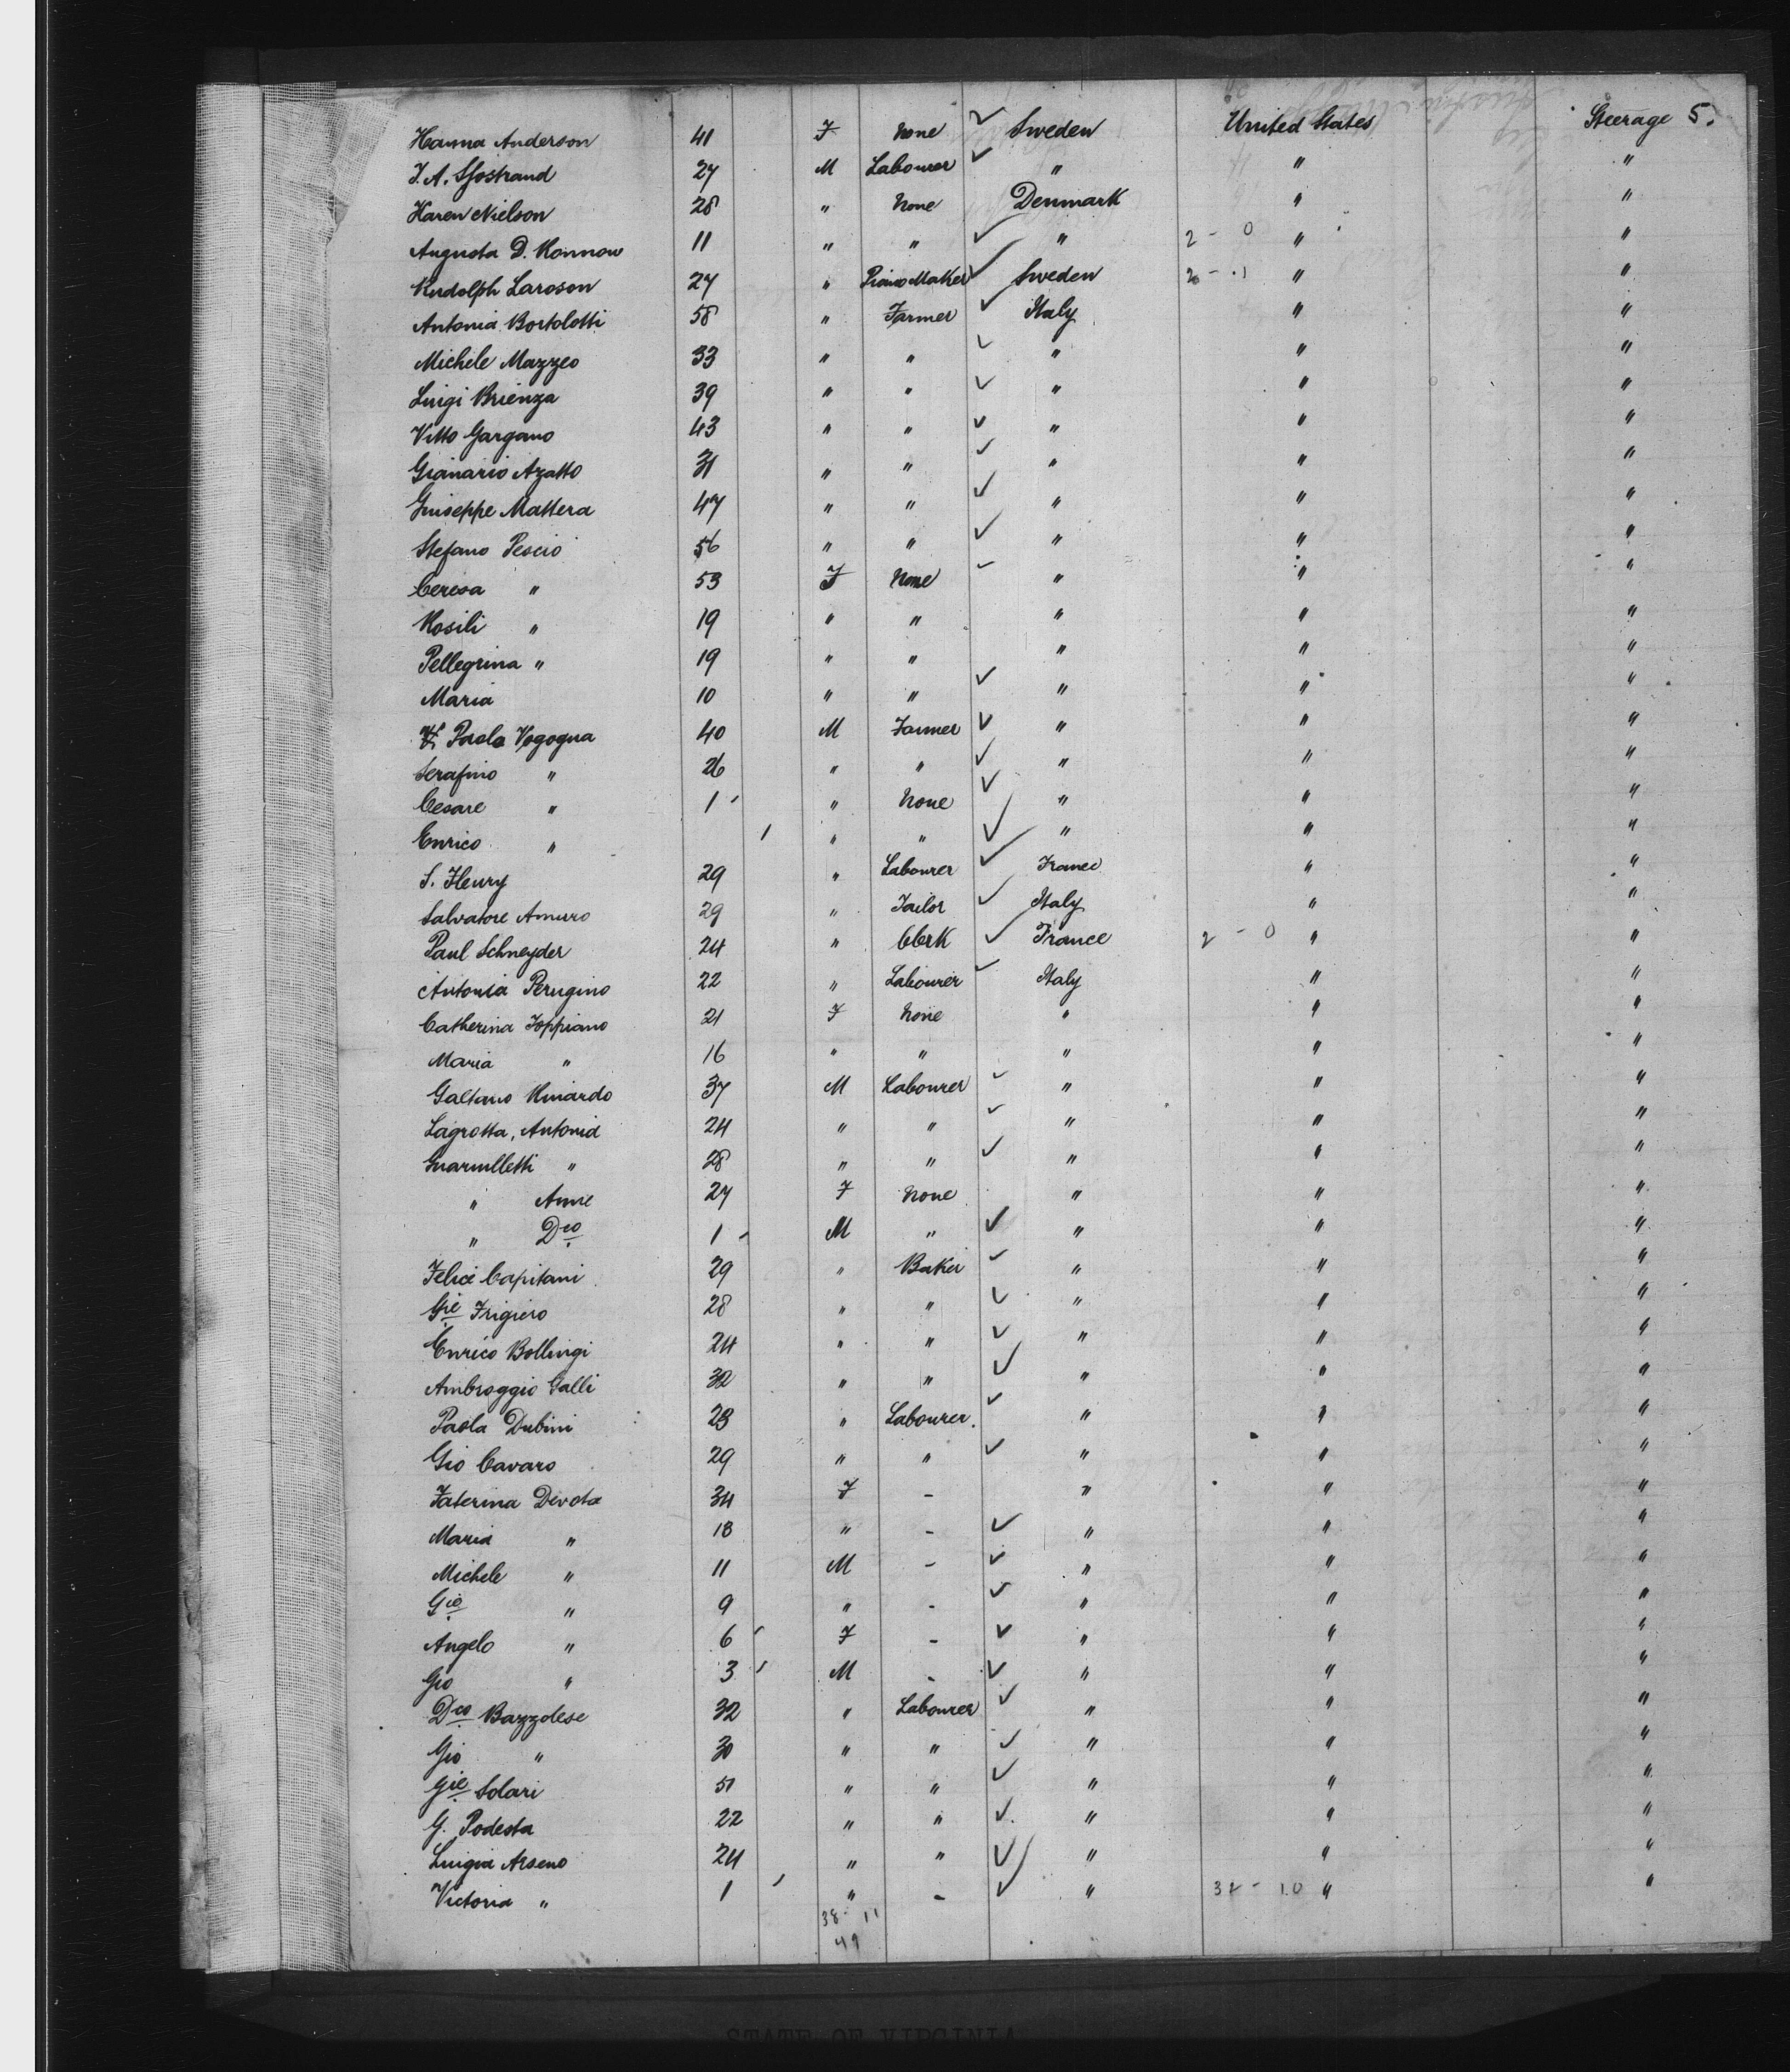 Hanna Anderson 41 F None Sweden United States Steerage 5.
J. A. Sjostrand 27 M Labourer " " "
Karen Nielson 28 " None Denmark " "
Augusta D. Konnow 11 " " " 2 - 0 " "
Rudolph Larsson 27 " Piano Maker Sweden 2 - 1 " "
Antonia Bortolotti 58 " Farmer Italy " "
Michele Mazzeo 33 " " " " "
Luigi Brienza 39 " " " " "
Vitto Gargano 43 " " " " "
Gianario Azatto 31 " " " " "
Guiseppe Mattera 47 " " " " "
Stefano Pescio 56 " " " " "
Ceresa " 53 F None " " "
Rosili " 19 " " " " "
Pellegrina " 19 " " " " "
Maria 10 " " " " "
Paolo Vogogna 40 M Farmer " " "
Serafino " 26 " " " " "
Cesare " 1 " None " " "
Enrico " 1 " " " " "
S. Fleury 29 " Labourer France " "
Salvatore Amuro 29 " Tailor Italy " "
Paul Schneyder 24 " Clerk France 2 - 0 " "
Antonia Perugino 22 " Labourer Italy " "
Catherina Foppiano 21 F None " " "
Maria " 16 " " " " "
Gaetano Rinardo 37 M Labourer " " "
Lagrotta, Antonia 24 " " " " "
Guarnilletti " 28 " " " " "
" Anne 27 F None " " "
" Dco 1 M " " " "
Felice Capitani 29 " Baker " " "
Gie Frigiero 28 " " " " "
Enrico Bollingi 24 " " " " "
Ambroggio Galli 32 " " " " "
Paola Dubini 23 " Labourer. " " "
Gio Cavaro 29 " " " " "
Faterina Devota 34 F - " " "
Maria " 18 " - " " "
Michele " 11 M - " " "
Gio " 9 " - " " "
Angelo " 6 F - " " "
Gio " 3 M - " " "
Dco Bazzolese 32 " Labourer " " "
Gio " 30 " " " " "
Gie Solari 51 " " " " "
G. Podesta 22 " " " " "
Luigia Arseno 24 " " " " "
Victoria " 1 " - " 37 - 10 " "
38 - 11
49
STATE OF VIRGINIA